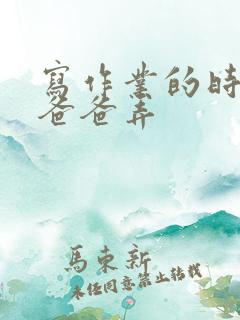 寫作業的時
爸爸弄
馬東新
未經同意禁止轉載